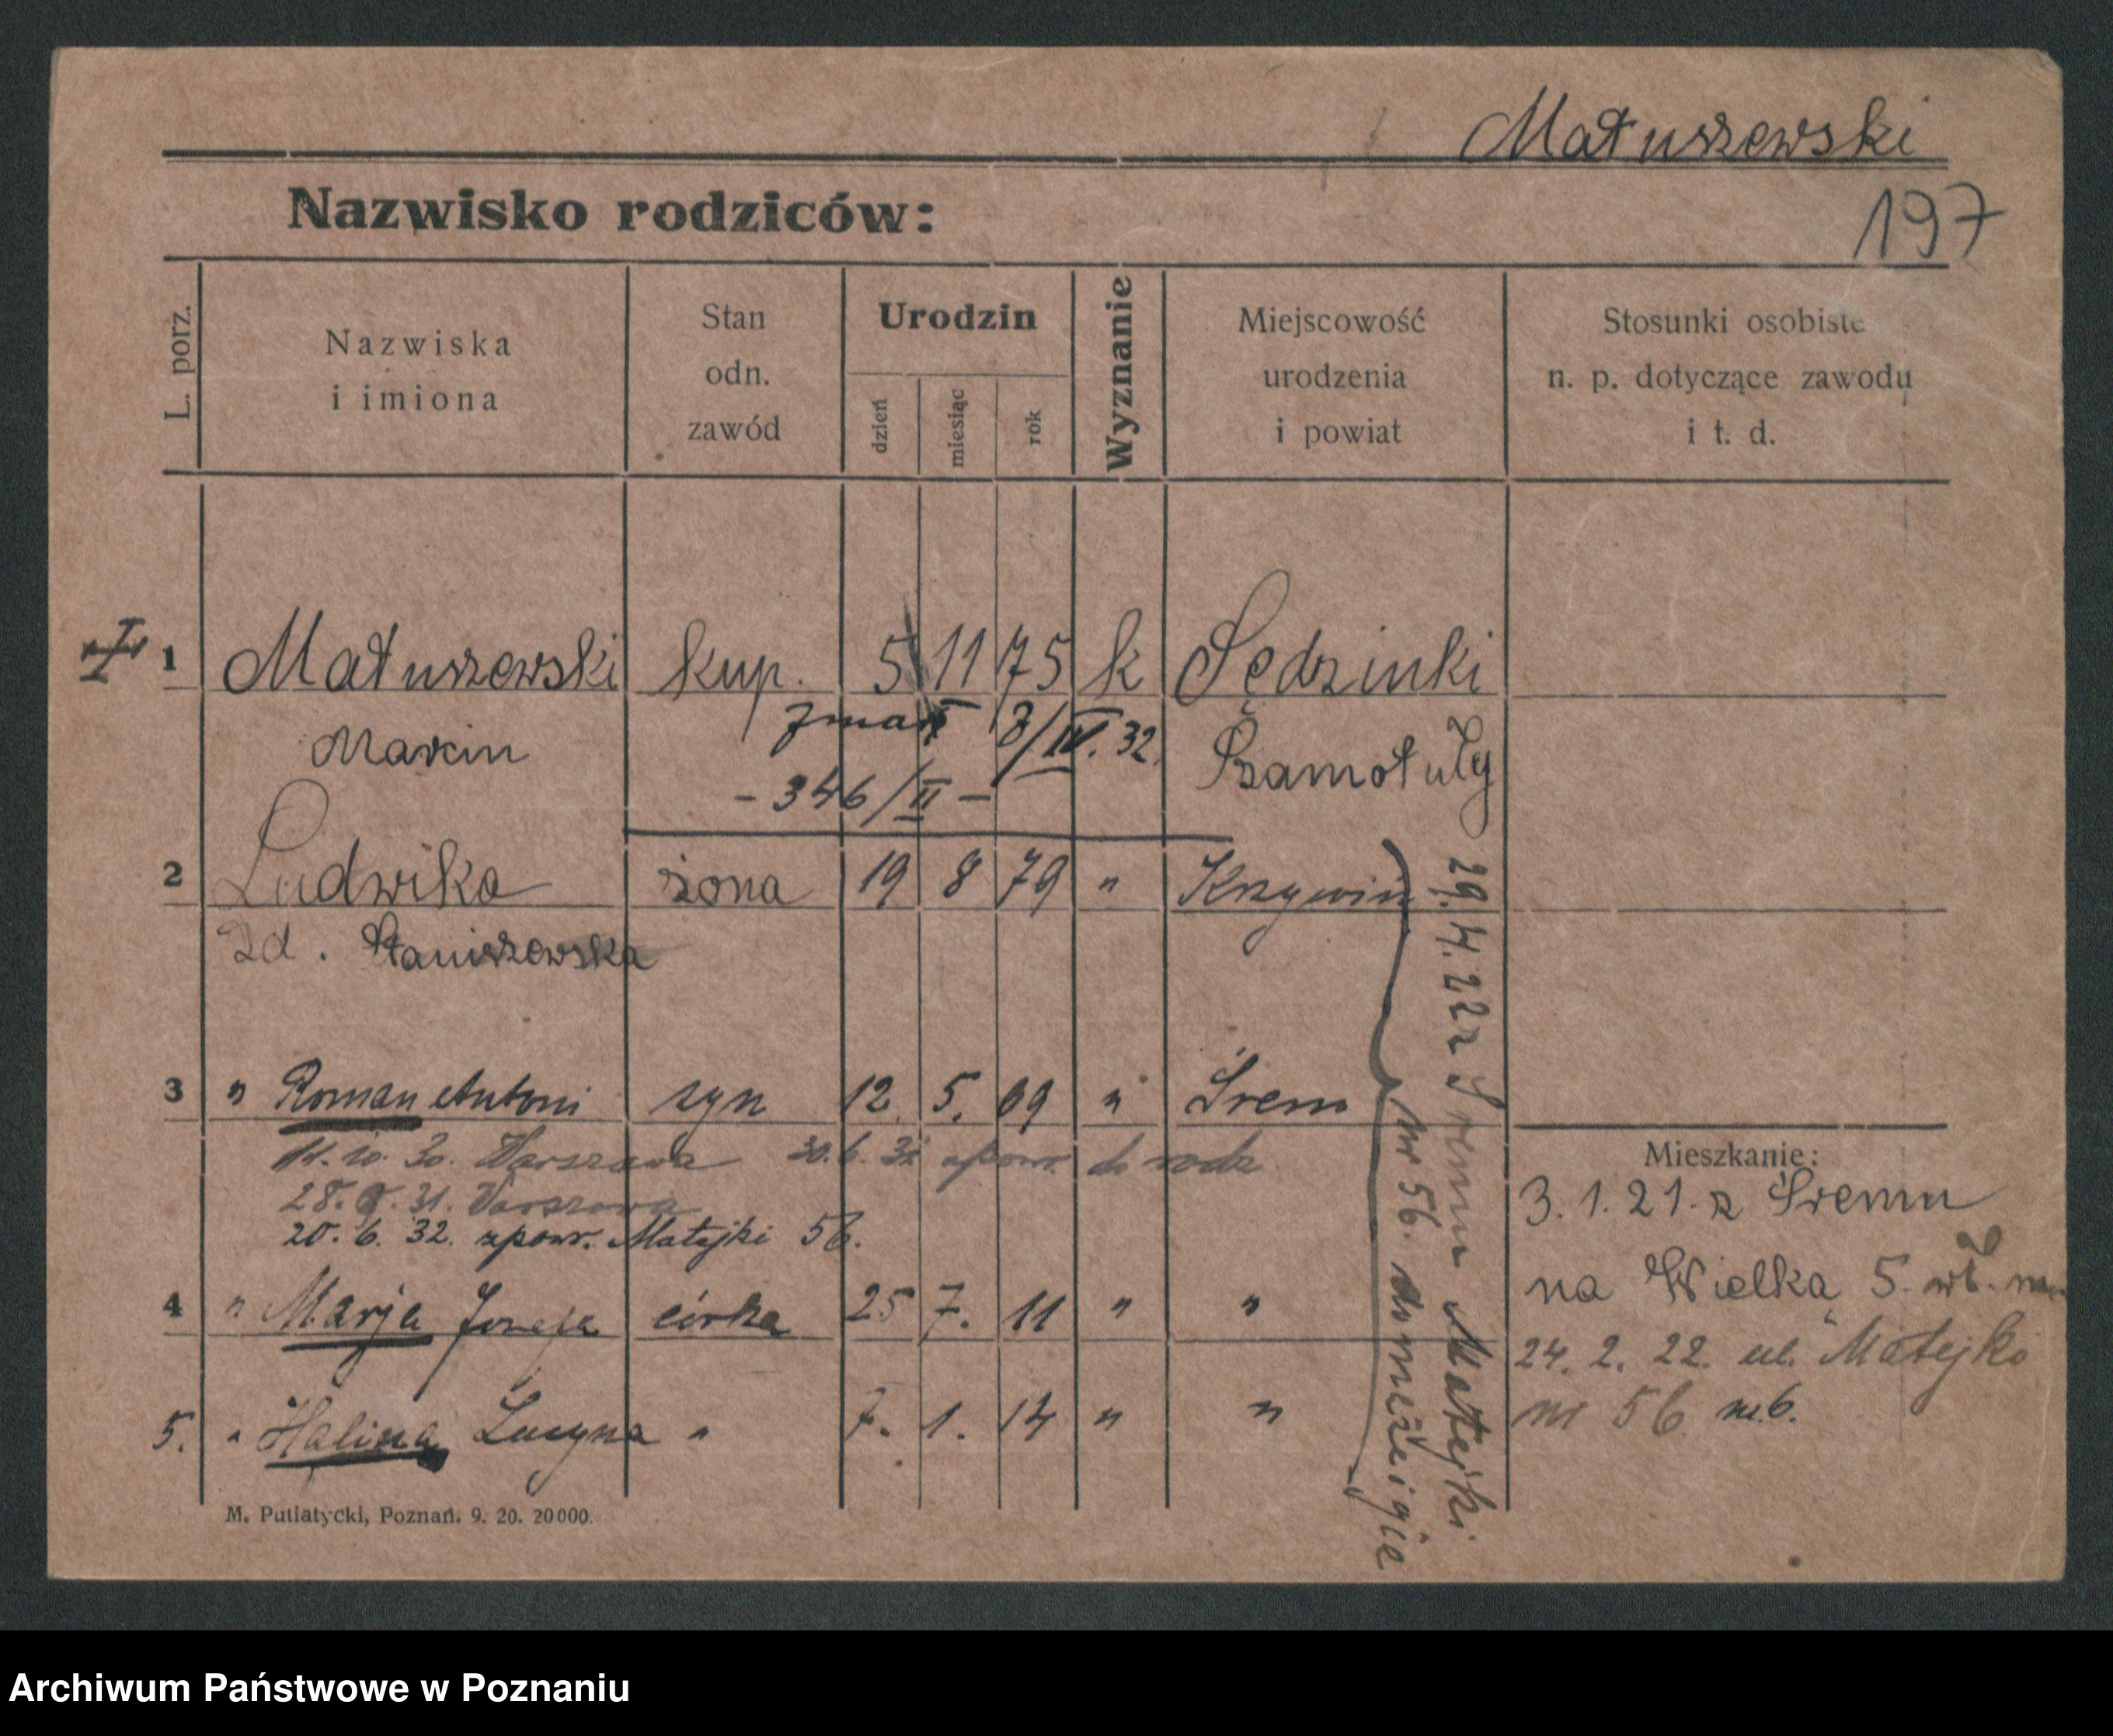 Matuszewski
197
Nazwisko rodziców:
L. porz.
Nazwiska
i imiona
Stan
odn.
zawód
Urodzin
dzień
miesiąc
rok
Wyznanie
Miejscowość
urodzenia
i powiat
Stosunki osobiste
n. p. dotyczące zawodu
i t. d.
1 Matuszewski kup. 5 11 75 k Sędzinki
Marcin zmarł 8/IV. 32 Szamotuły
- 346/II -
2 Ludwika żona 19 8 79 " Krzywiń
zd. Staniszewska
3 " Roman Antoni syn 12. 5. 09 " Śrem
11. 10. 30. Warszawa 30. 6. 31 zpowr. do rodz
28. 8. 31. Warszawa
20. 6. 32. zpowr. Matejki 56.
4 " Marja Jozefa córka 25 7. 11 " "
5. " Halina Lucyna " 7. 1. 14 " "
29. 4. 22 z Śremu Matejki
nr 56. do
Mieszkanie:
3. 1. 21. z Śremu
na Wielka 5. wł.
24. 2. 22. ul. Matejko
nr 56 m.6.
M. Putiatycki, Poznań. 9. 20. 20000.
Archiwum Państwowe w Poznaniu